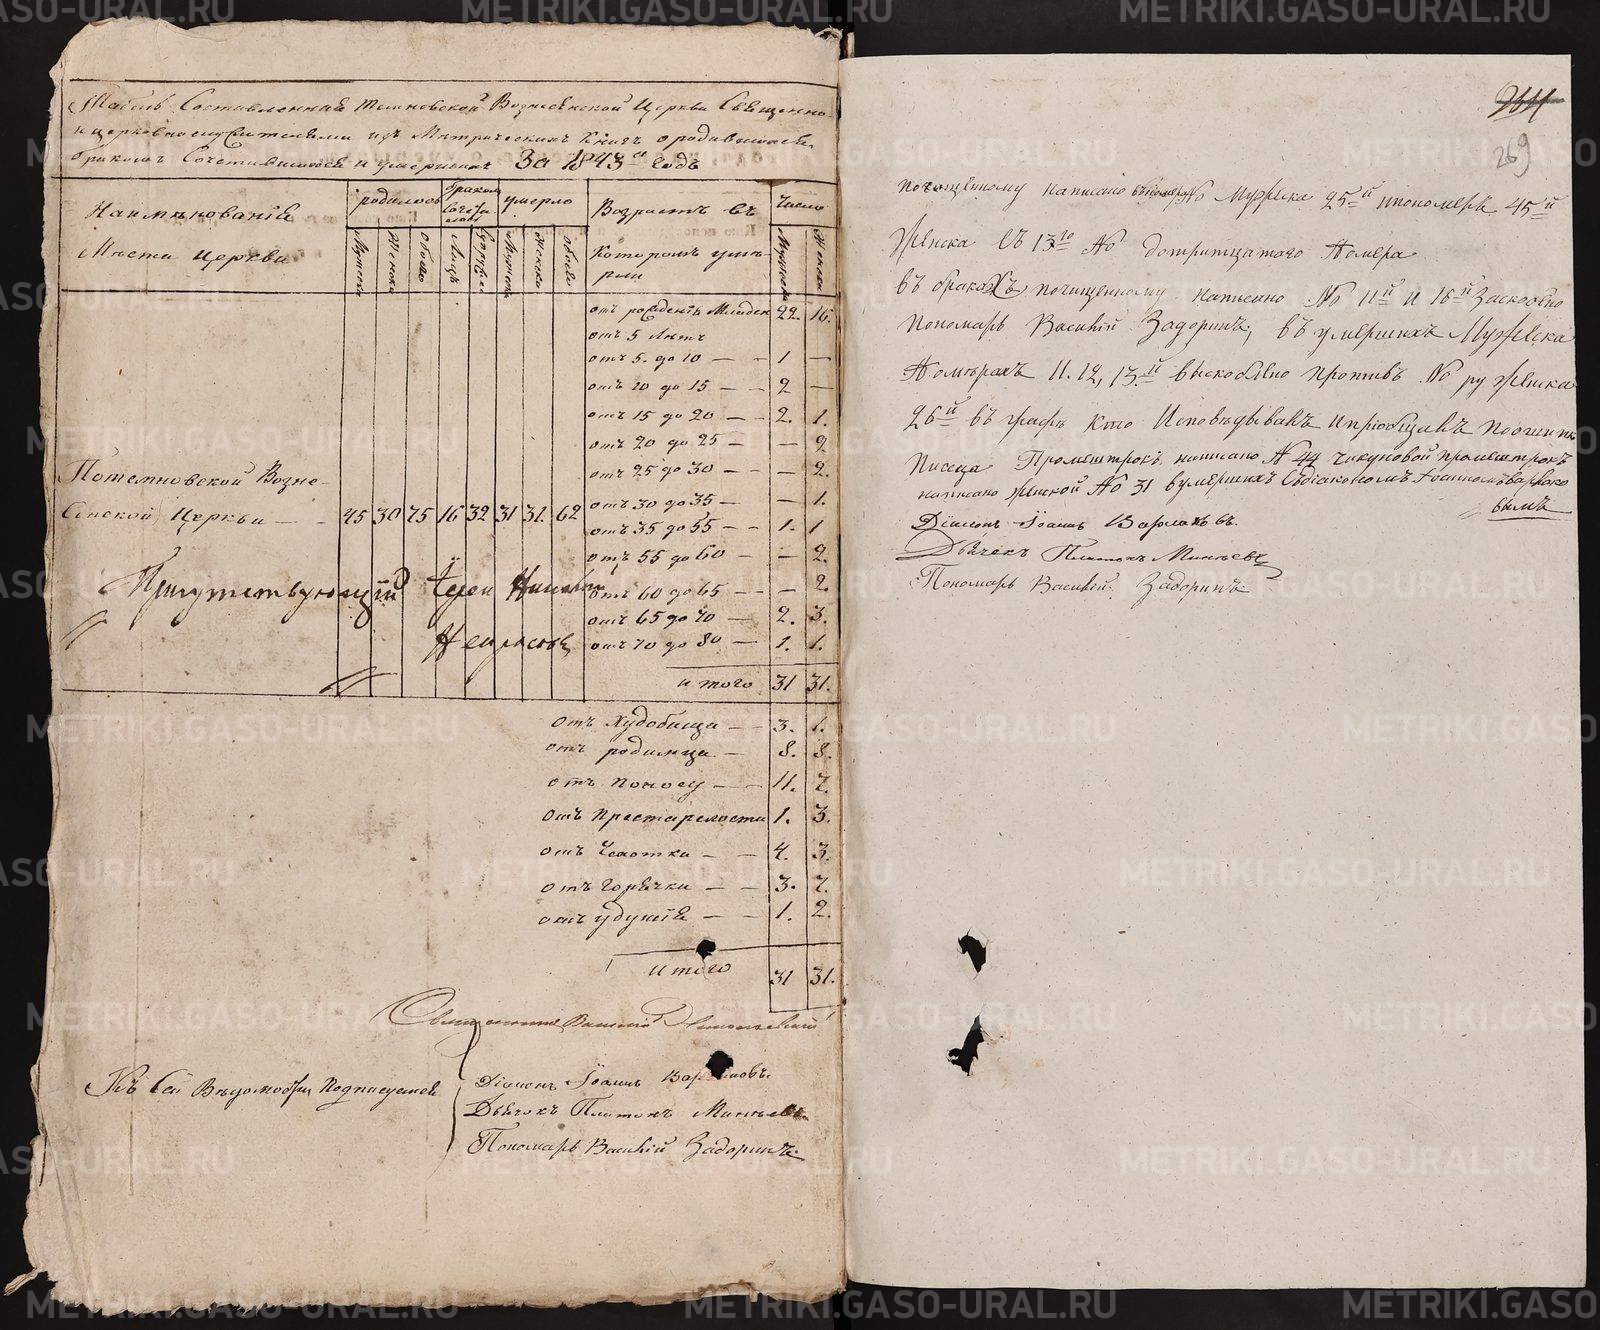 Табель Составленная Темновской Вознесенской Церкви Священно-
и церковнослужителями изъ Метрическихъ Книгъ о родившихся
бракомъ Сочетавшихся и умершихъ За 1843й Годъ
Наименованія Места Церкви
родилось
бракомъ сочеталось
умерло
Возрастъ въ Которомъ умерли
Число
Мужеска Женска обоего Лицъ Мужска Женска обоего Мужеска Женска
отъ рожденія Младен 22. 16.
отъ 5 Летъ
отъ 5. до 10 — — 1 —
отъ 10 до 15 — — 2 —
отъ 15 до 20 — — 2. 1.
отъ 20 до 25 — — 2
отъ 25 до 30 — — — 2.
отъ 30 до 35 — — 1.
отъ 35 до 55 — — 1. 1
отъ 55 до 60 — — 2.
отъ 60 до 65 — — — 2.
отъ 65 до 70 — 2. 3.
отъ 70 до 80 — 1. 1.
итого 31 31.
По темновской Возне-
сенской Церкви — — 45 30 75 16 32 31 31. 62
Присутствующій Іерей
отъ Худобища — — 3. 1.
отъ родимца — 8. 8.
отъ поносу — — 11. 7.
отъ Престарелости 1. 3.
отъ Чахотки — — 4. 3.
отъ Горячки — — 3. 7.
отъ удушія — — 1. 2.
Итого 31 31.
Священникъ Василій
Къ Сей Ведомости Подписуемся
Діаконъ Іоаннъ Варлаковъ.
Дьячекъ Платонъ Минеевъ
Пономарь Василій Задоринъ.
269
почищенному написано No Мужеска 25й и пономеръ 45й
Женска въ 13го No до тритцатаго Номера
въ бракахъ почищенному написано No 11й и 16й Заскоблно
Пономарь Василій Задоринъ, въ умершихъ Мужеска
Номерахъ 11. 12, 13й выскоблено противъ No Женска
26й въ графе Кто Исповедывалъ и пріобщалъ по ошипке
Писца Промештрокъ написано No 44 промештрокъ
написано Женской No 31 в умершихъ Съдіакономъ Іоанномъ Варлако
вымъ
Діаконъ Іоаннъ Варлаковъ.
Дьячекъ Платонъ Минеевъ
Пономарь Василій Задоринъ
METRIKI.GASO-URAL.RU